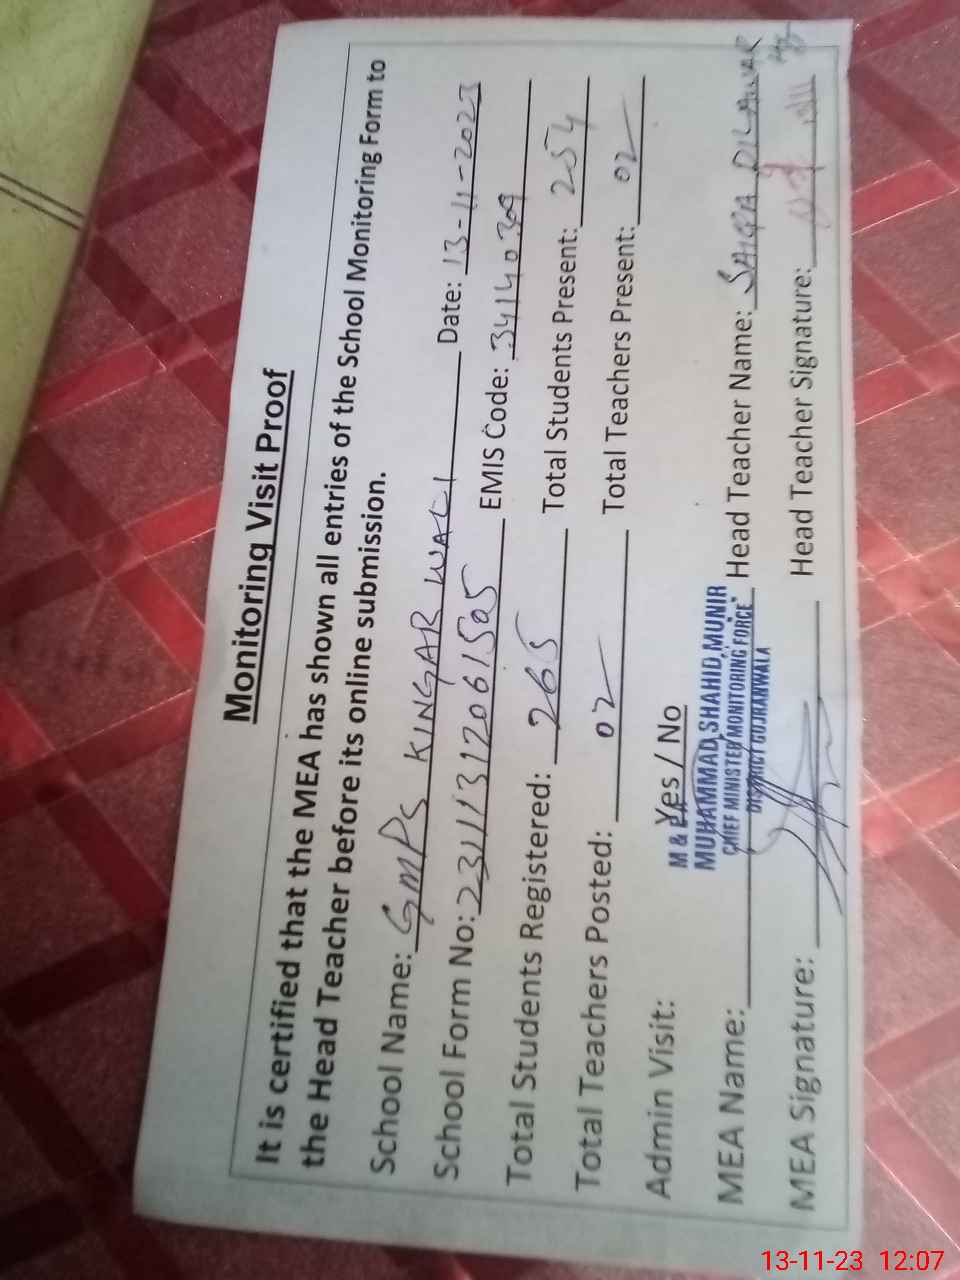 Monitoring Visit Proof
It is certified that the MEA has shown all entries of the School Monitoring Form to
the Head Teacher before its online submission.
School Name: GMPS KINGAR WALI Date: 13-11-2023
School Form No: 23111312061505 EMIS Code: 34140309
Total Students Registered: 265 Total Students Present: 254
Total Teachers Posted: 02 Total Teachers Present: 02
Admin Visit: Yes / No
M &
MUHAMMAD SHAHID MUNIR
CHIEF MINISTER MONITORING FORCE
DISTRICT GUJRANWALA
MEA Name: Head Teacher Name: SAIRA DILAWAR
MEA Signature: Head Teacher Signature:
13-11-23 12:07